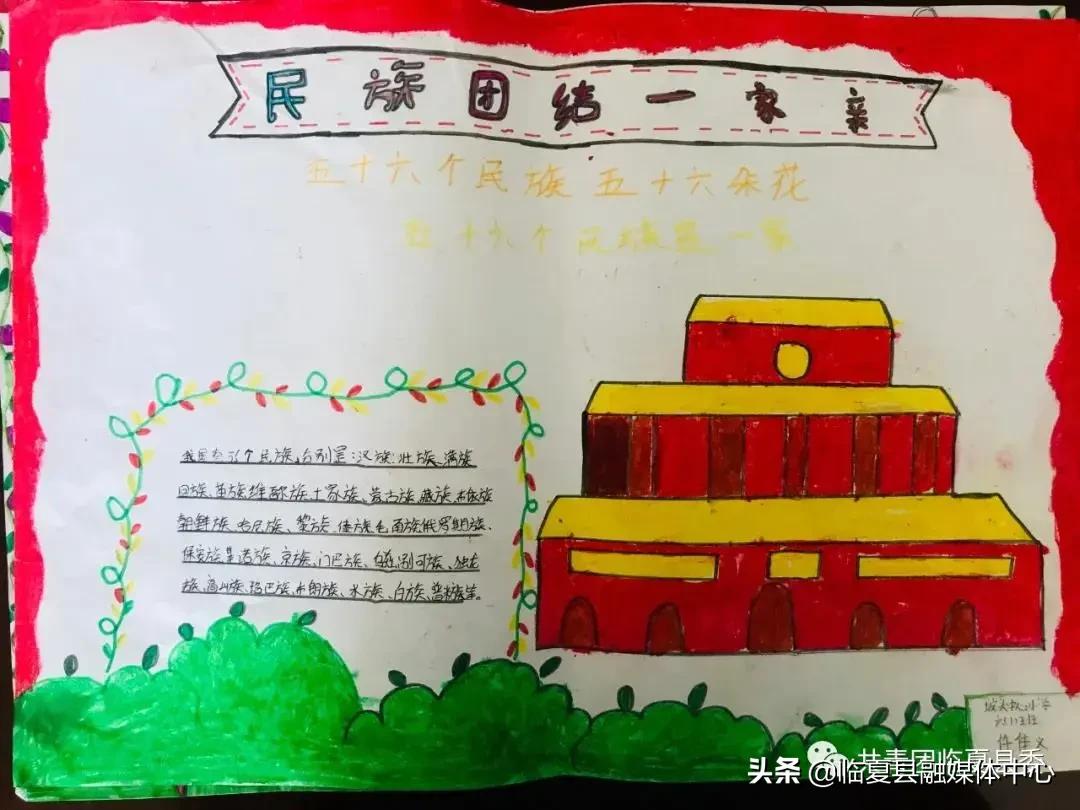 民族团结一家亲
五十六个民族 五十六朵花
五十六个民族是一家
我国有56个民族,分别是:汉族、壮族、满族
回族、苗族、维吾尔族、土家族、蒙古族、藏族、
朝鲜族、哈尼族、黎族、傣族、毛南族、俄罗斯族、
保安族、京族、门巴族、独龙
族、高山族、珞巴族、布朗族、水族、白族、普米族等。
共青团临夏县委
头条 @临夏县融媒体中心